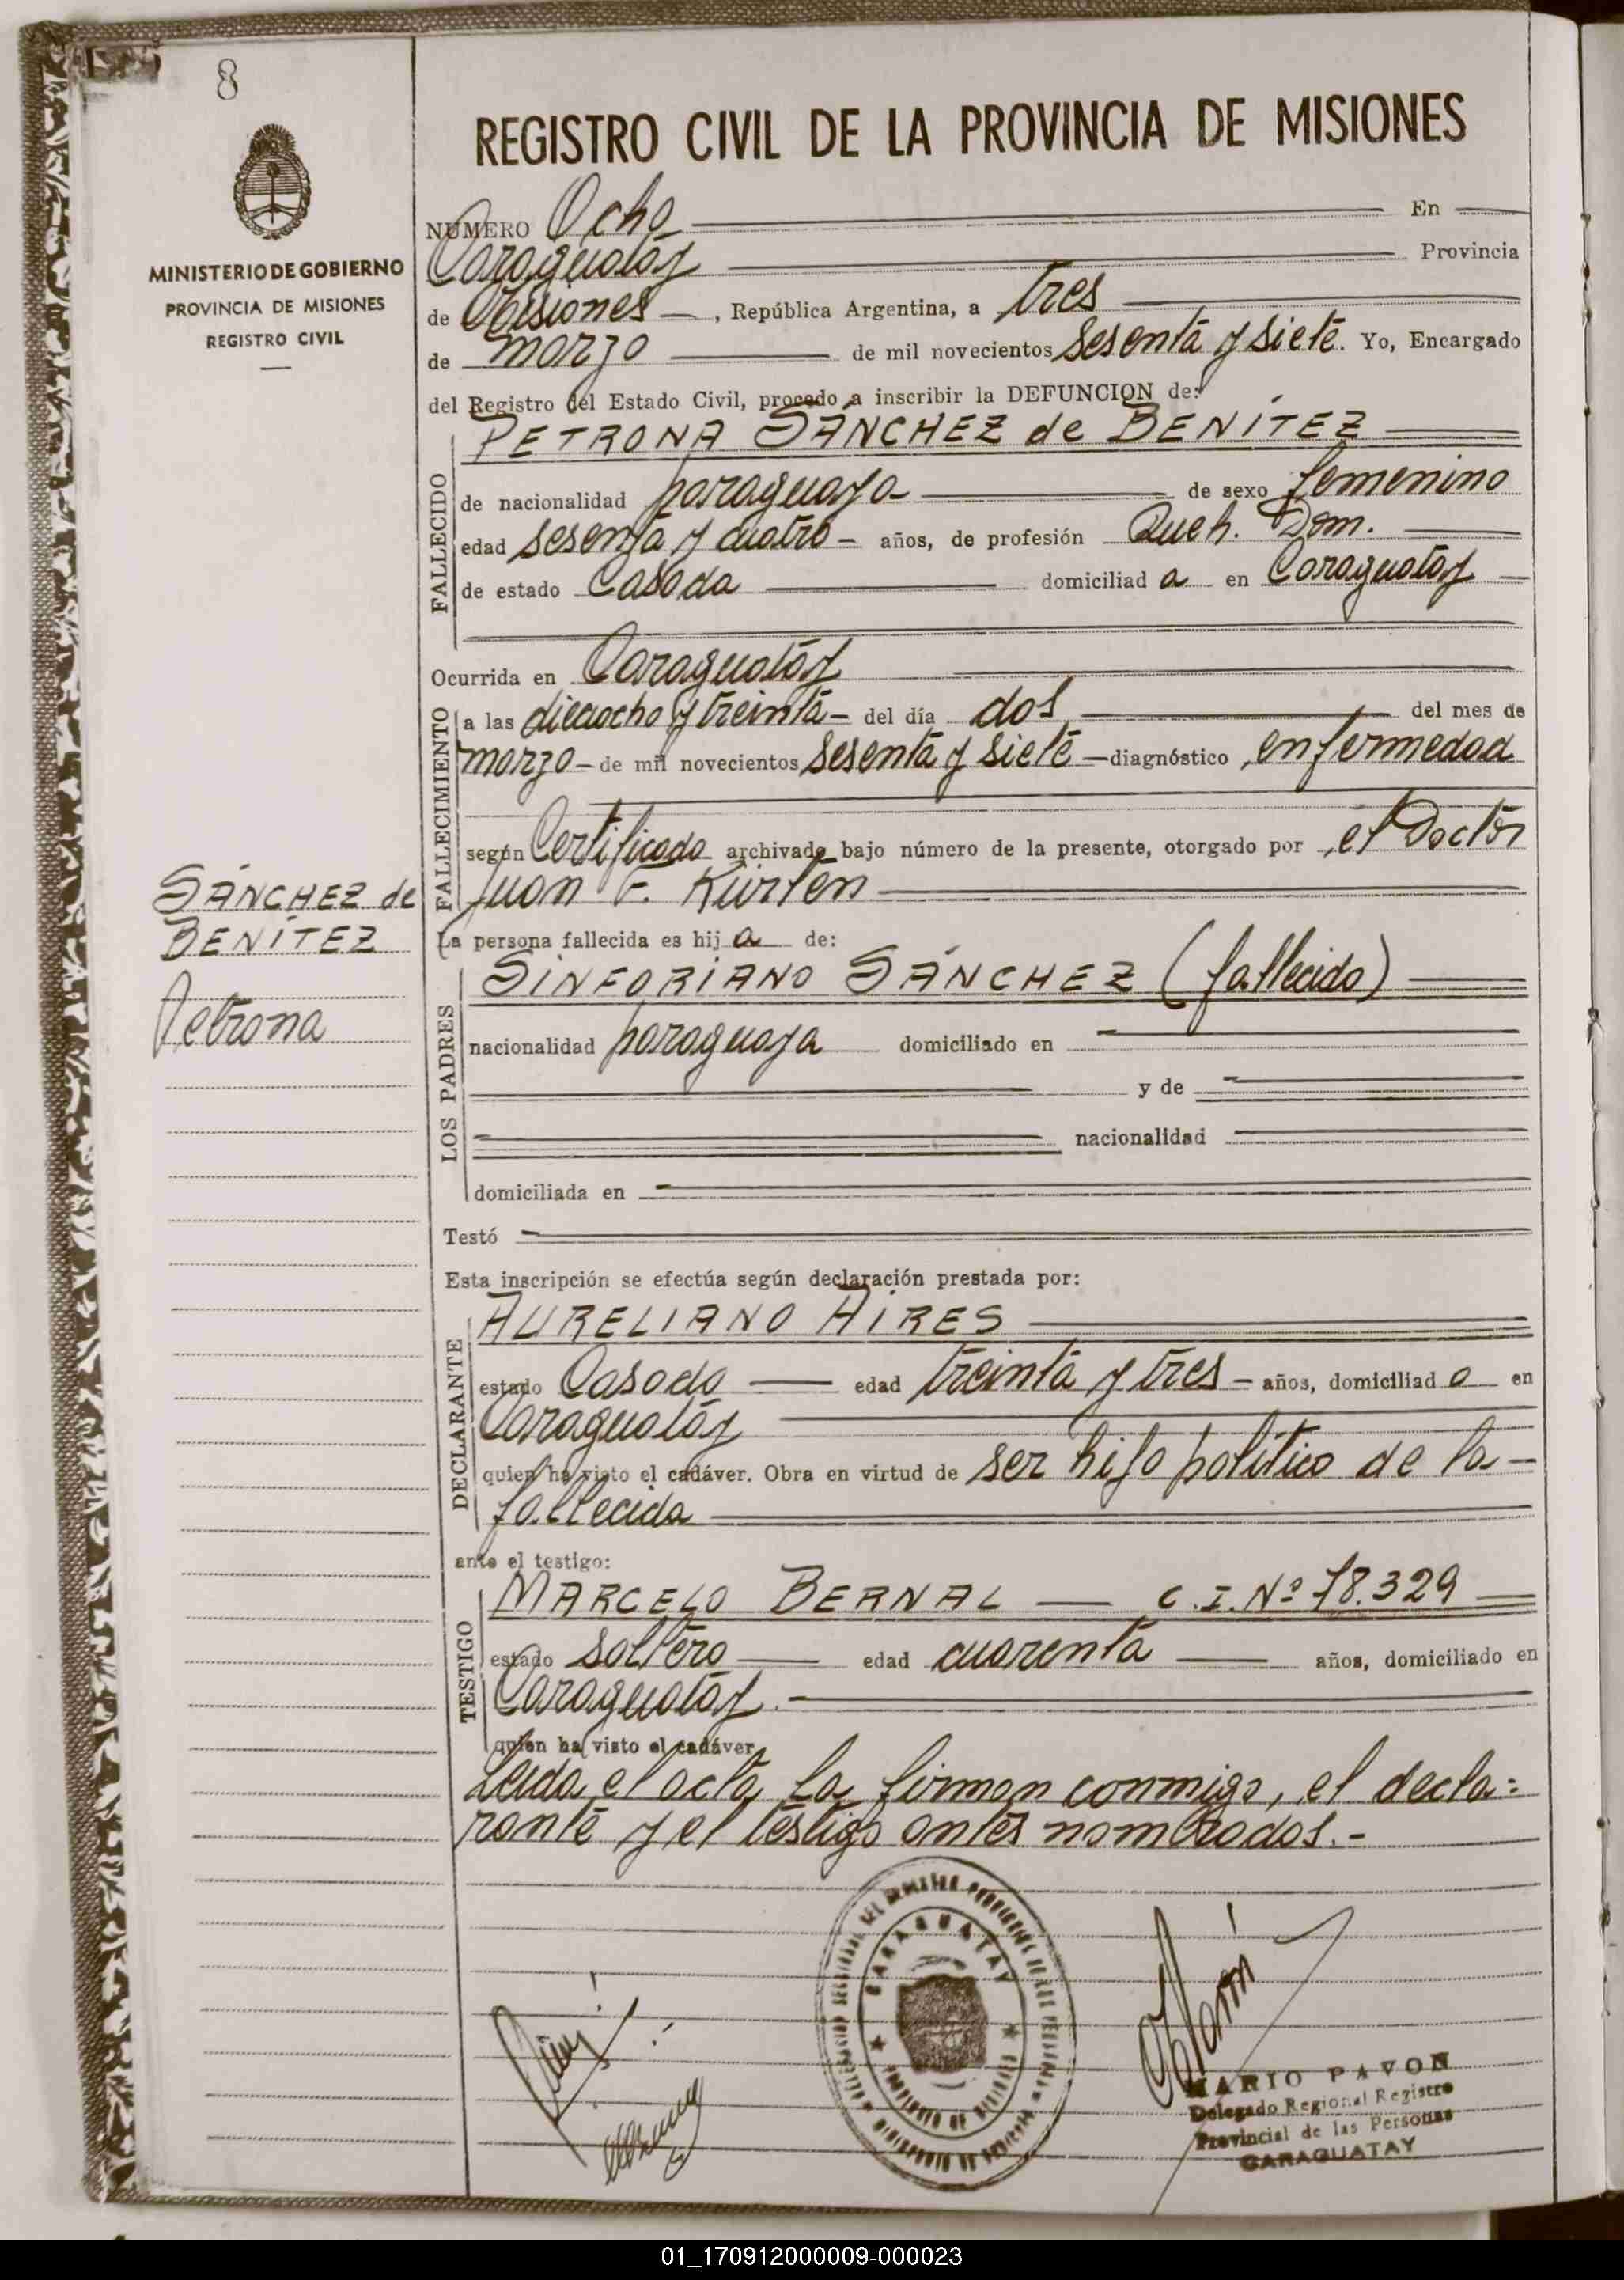 8
MINISTERIO DE GOBIERNO
PROVINCIA DE MISIONES
REGISTRO CIVIL
SÁNCHEZ de
BENÍTEZ
Petrona
REGISTRO CIVIL DE LA PROVINCIA DE MISIONES
NUMERO Ocho En
Caraguatay Provincia
de Misiones, República Argentina, a tres
de marzo de mil novecientos sesenta y siete. Yo, Encargado
del Registro del Estado Civil, procedo a inscribir la DEFUNCION de:
FALLECIDO
PETRONA SÁNCHEZ de BENÍTEZ
de nacionalidad paraguaya de sexo femenino
edad sesenta y cuatro - años, de profesión Queh. Dom.
de estado Casada domiciliad a en Caraguatay
Ocurrida en Caraguatay
FALLECIMIENTO
a las dieciocho y treinta - del día dos del mes de
marzo - de mil novecientos sesenta y siete - diagnóstico, enfermedad
según Certificado archivado bajo número de la presente, otorgado por, el Doctor
Juan F. Kürten
La persona fallecida es hij a de:
LOS PADRES
SINFORIANO SÁNCHEZ (fallecido)
nacionalidad paraguaya domiciliado en
y de
nacionalidad
domiciliada en
Testó
Esta inscripción se efectúa según declaración prestada por:
DECLARANTE
AURELIANO AIRES
estado Casado edad treinta y tres - años, domiciliad o en
Caraguatay
quien ha visto el cadáver. Obra en virtud de ser hijo político de la -
fallecida
ante el testigo:
TESTIGO
MARCELO BERNAL — C.I. Nº 78.329
estado soltero edad cuarenta años, domiciliado en
Caraguatay. -
quien ha visto el cadáver
Leída el acta, la firman conmigo, el decla=
rante y el testigo antes nombrados. -
CARAGUATAY
MARIO PAVON
Delegado Regional Registro
Provincial de las Personas
CARAGUATAY
01_170912000009-000023